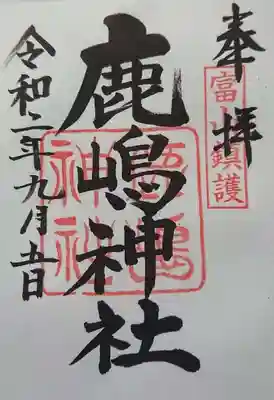 奉拝
富山鎮護
鹿嶋神社
鹿嶋神社
令和二年九月五日